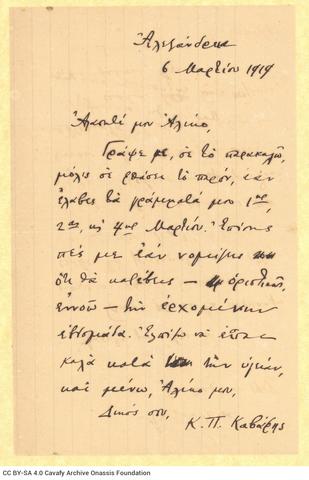 Ἀλεξάνδρεια
6 Μαρτίου 1919
Ἀγαπητέ μου Ἀλέκο,
Γράψε με, σὲ τὸ παρακαλῶ,
μόλις σὲ φθάσει τὸ παρόν, ἐὰν
ἔλαβες τὰ γράμματά μου 1ης,
2ας, κι 4ης Μαρτίου. Ἐπίσης
πές με ἐὰν νομίζεις
ὅτι θὰ κατέβεις — ὁριστικῶς,
ἐννοῶ — τὴν ἐρχομένην
ἑβδομάδα. Ἐλπίζω νὰ εἶσαι
καλὰ κατὰ τὴν ὑγείαν,
καὶ μένω, Ἀλέκο μου,
Δικός σου,
Κ. Π. Καβάφης
CC BY-SA 4.0 Cavafy Archive Onassis Foundation